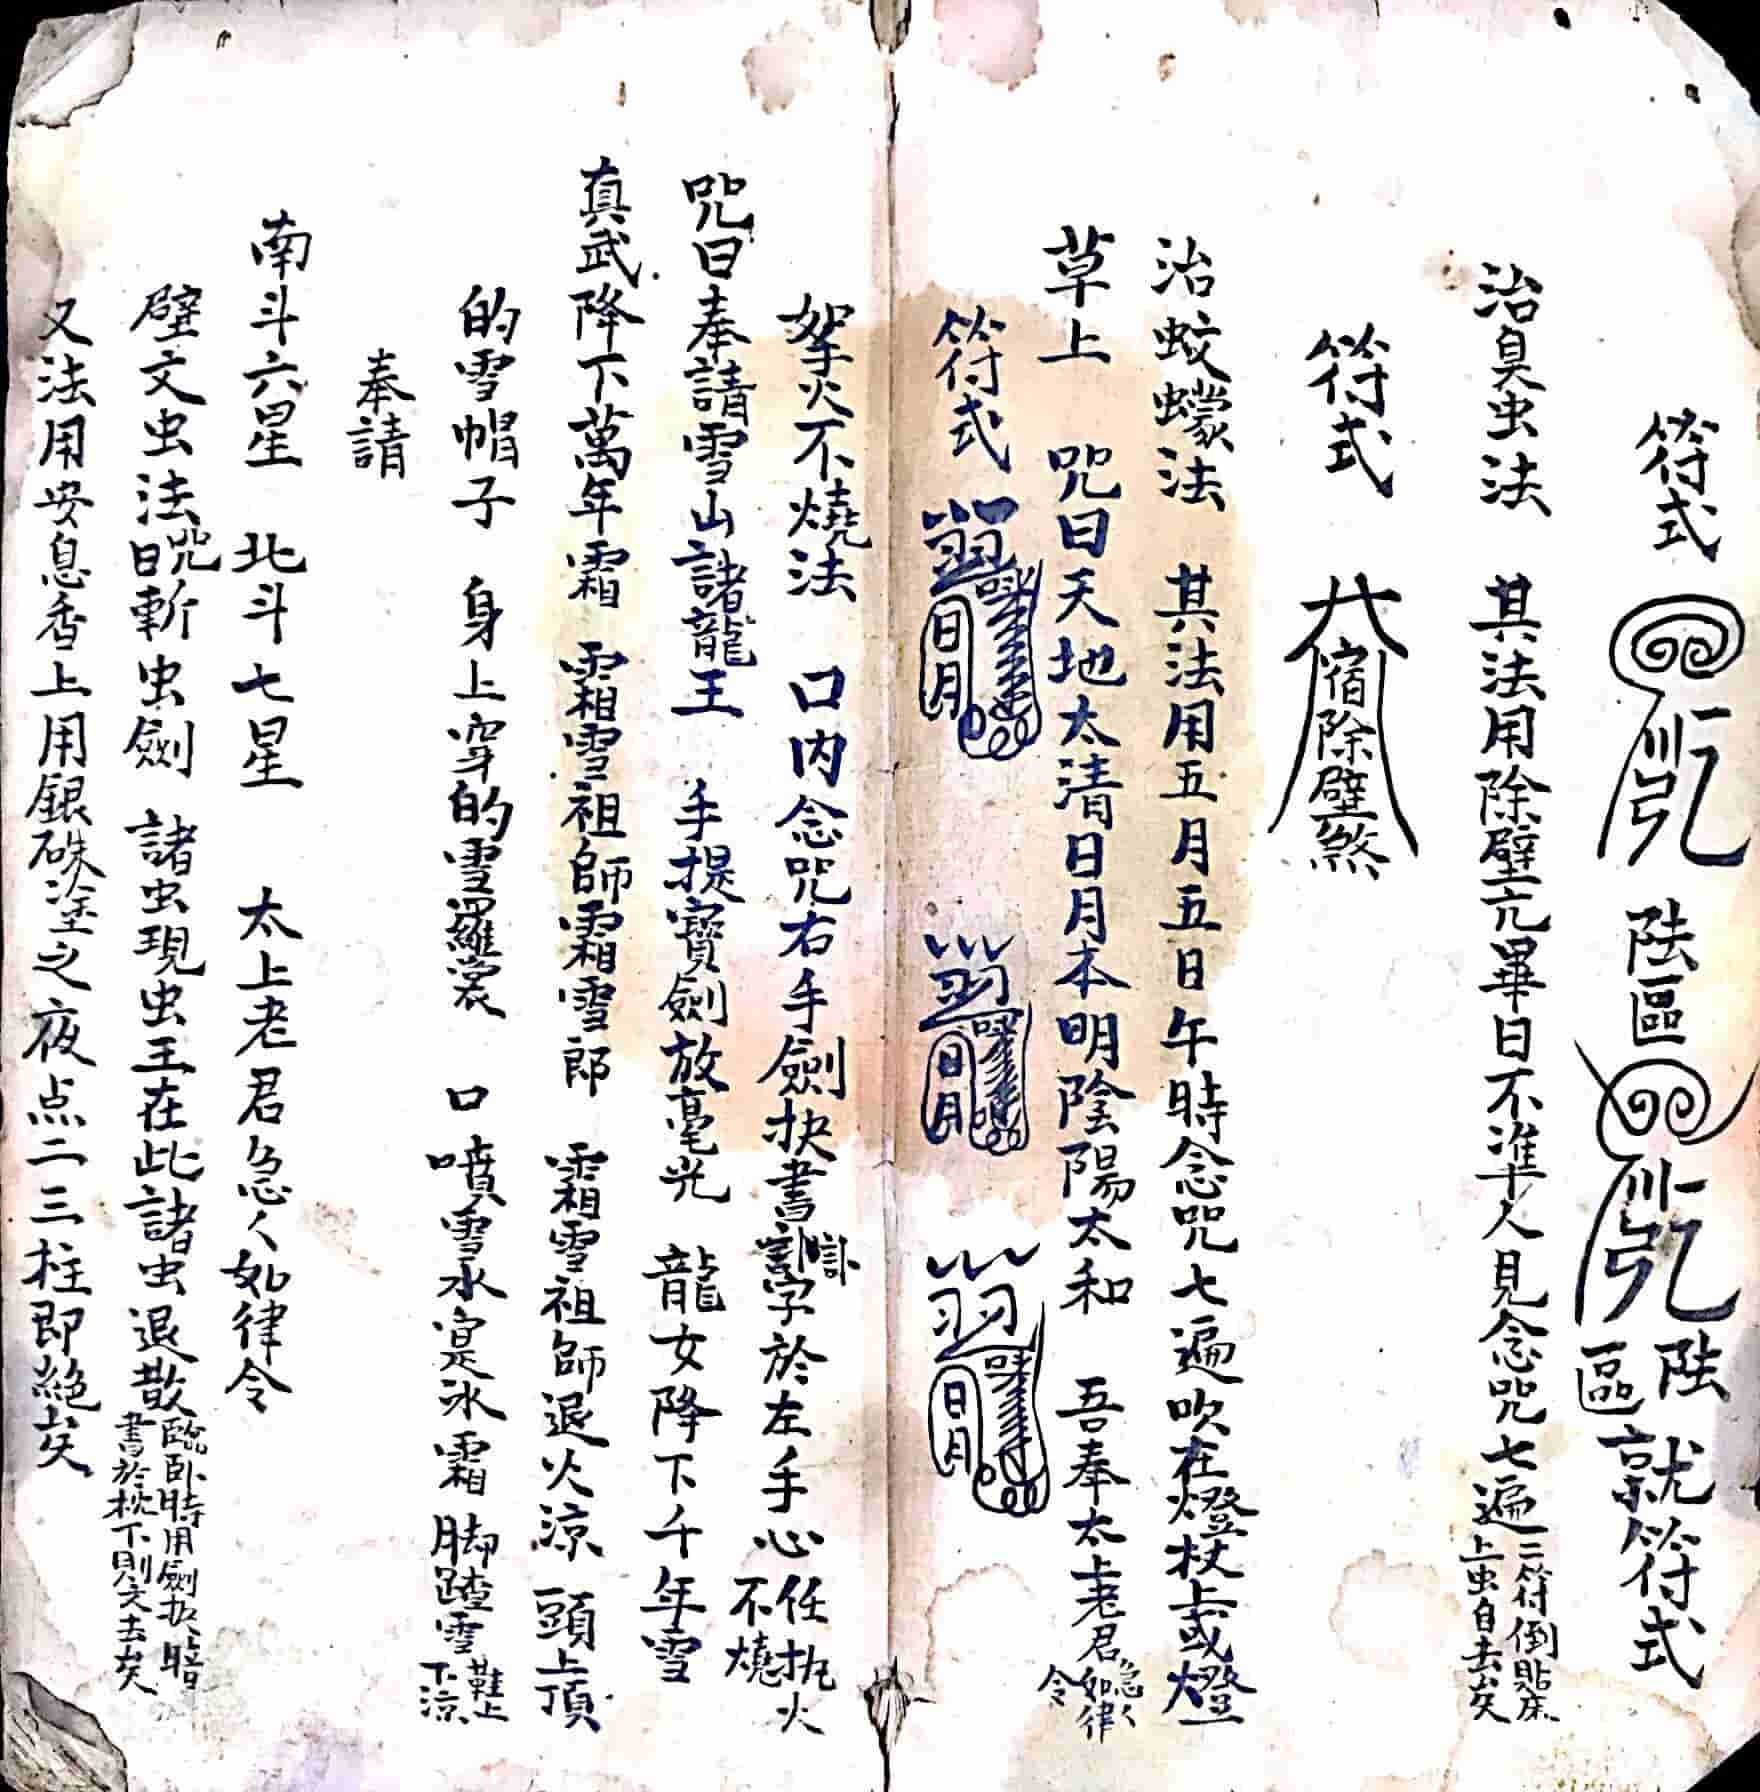 符式 陹區 陹區 就符式
治臭虫法 其法用除壁亢畢日不準人見念咒七遍 二符倒貼床上虫自去矣
符式 六宿除壁煞
治蚊蠓法 其法用五月五日午時念咒七遍吹在燈杖上或燈
草上 咒曰天地太清日月本明陰陽太和 吾奉太上老君急々如律令
符式 日月 日月 日月
拏火不燒法 口内念咒右手劍抉書字於左手心任扤火不燒
咒曰奉請雪山諸龍王 手提寶劍放毫光 龍女降下千年雪
真武降下萬年霜 霜雪祖師霜雪郎 霜雪祖師退火涼 頭上頂
的雪帽子 身上穿的雪羅裳 口噴雪水寔氷霜 脚踏雪鞋上下涼
奉請
南斗六星 北斗七星 太上老君急々如律令
壁文虫法咒曰斬虫劍 諸虫現虫王在此諸虫退散 臨卧時用劍抉暗書於枕下則文去矣
又法用安息香上用銀硃塗之夜点二三柱即絶矣